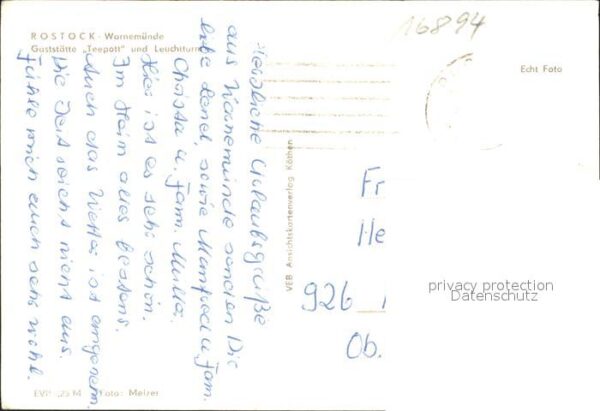 ROSTOCK - Warnemünde
Gaststätte „Teepott" und Leuchtturm
16894
Echt Foto
Herzliche Urlaubsgrüße
aus Warnemünde senden Dir
liebe sowie Manfred u. Fam.
Christa u. Fam. Müller.
Hier ist es sehr schön.
Im Heim alles bestens.
Auch das Wetter ist angenehm.
Die Zeit reicht nicht aus.
Fühle mich auch sehr wohl.
VEB Ansichtskartenverlag Köthen
Fr
He
926
Ob.
privacy protection
Datenschutz
EVP -,25 M
Foto: Meizer